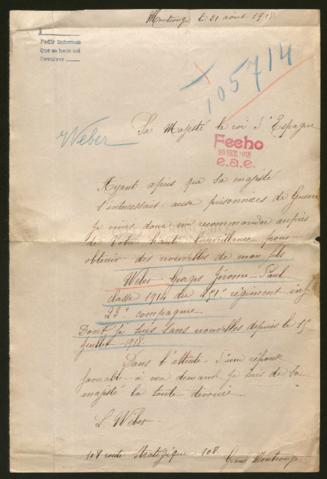 Montrouge le 31 août 1918
Pedir informes
105714
Weber
Sa Majesté le roi d'Espagne
Fecho
e.a.e.
Ayant apris que sa majesté
s'interessait aux prisonnies de Guerre
je viens donc me recommander auprès
de votre haute bienveillance pour
obtenir des nouvelles de mon fils
Weber Georges Jérome Paul
classe 1914 du régiment inf
23e compagnie
Dont je suis sans nouvelles depuis le 15
juillet 1918
Dans l'attente d'une réponse
favorable à ma demande je suis de sa
majesté la toute dévouée
L Weber
108 route Stratégique 108
Montrouge